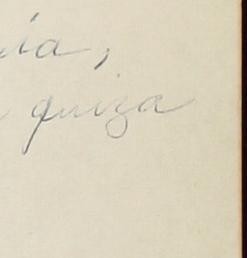 ia,
quiza